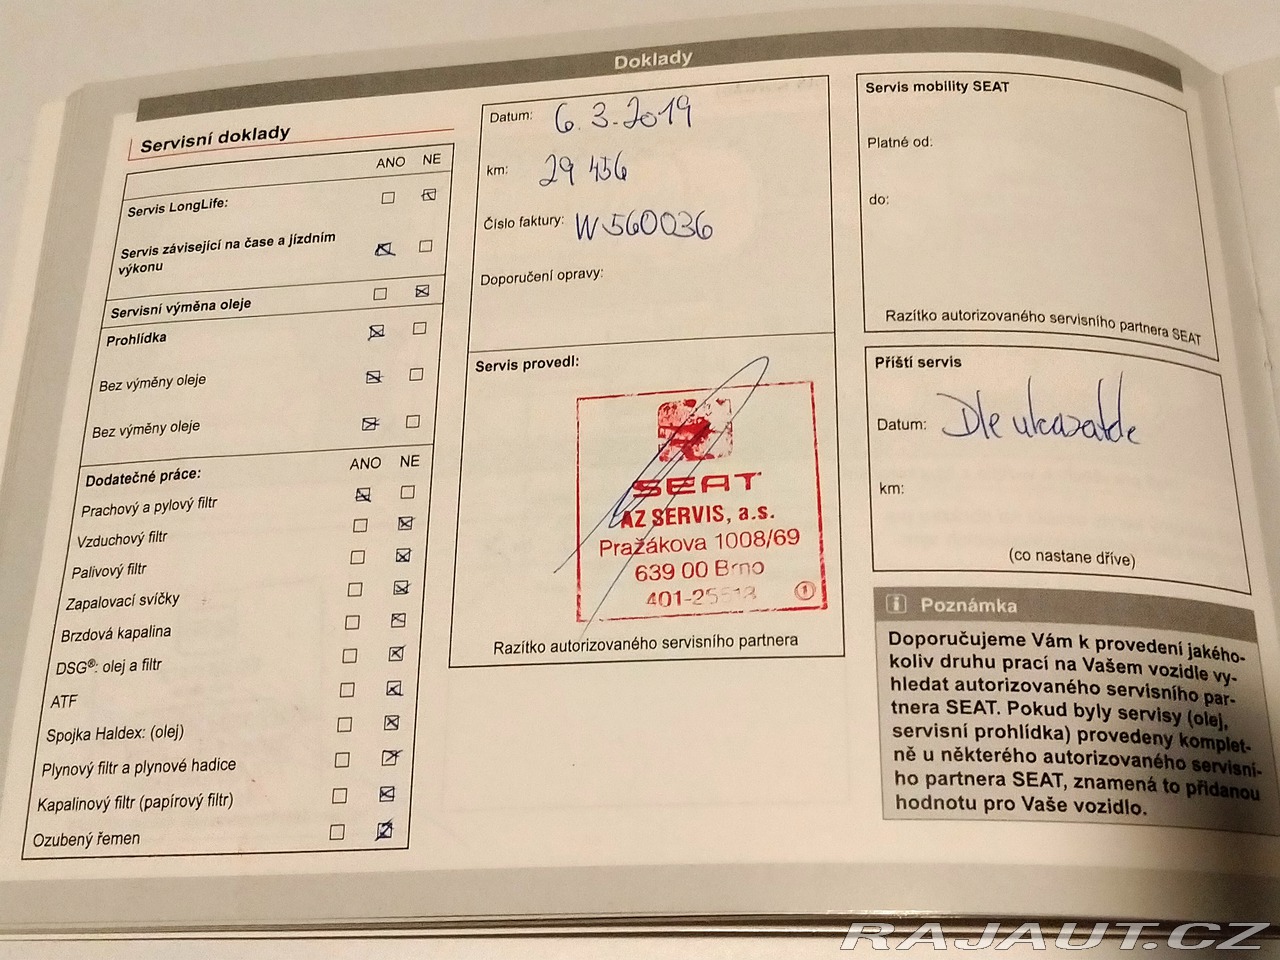 Doklady
Servisní doklady
ANO NE
Servis LongLife:
Servis závisející na čase a jízdním
výkonu
Servisní výměna oleje
Prohlídka
Bez výměny oleje
Bez výměny oleje
Dodatečné práce: ANO NE
Prachový a pylový filtr
Vzduchový filtr
Palivový filtr
Zapalovací svíčky
Brzdová kapalina
DSG®: olej a filtr
ATF
Spojka Haldex: (olej)
Plynový filtr a plynové hadice
Kapalinový filtr (papírový filtr)
Ozubený řemen
Datum: 6.3.2019
km: 29 456
Číslo faktury: W560036
Doporučení opravy:
Servis provedl:
SEAT
AZ SERVIS, a.s.
Pražákova 1008/69
639 00 Brno
401-25513
1
Razítko autorizovaného servisního partnera
Servis mobility SEAT
Platné od:
do:
Razítko autorizovaného servisního partnera SEAT
Příští servis
Datum: Dle ukazatele
km:
(co nastane dříve)
i Poznámka
Doporučujeme Vám k provedení jakého-
koliv druhu prací na Vašem vozidle vy-
hledat autorizovaného servisního par-
tnera SEAT. Pokud byly servisy (olej,
servisní prohlídka) provedeny komplet-
ně u některého autorizovaného servisní-
ho partnera SEAT, znamená to přidanou
hodnotu pro Vaše vozidlo.
RAJAUT.CZ